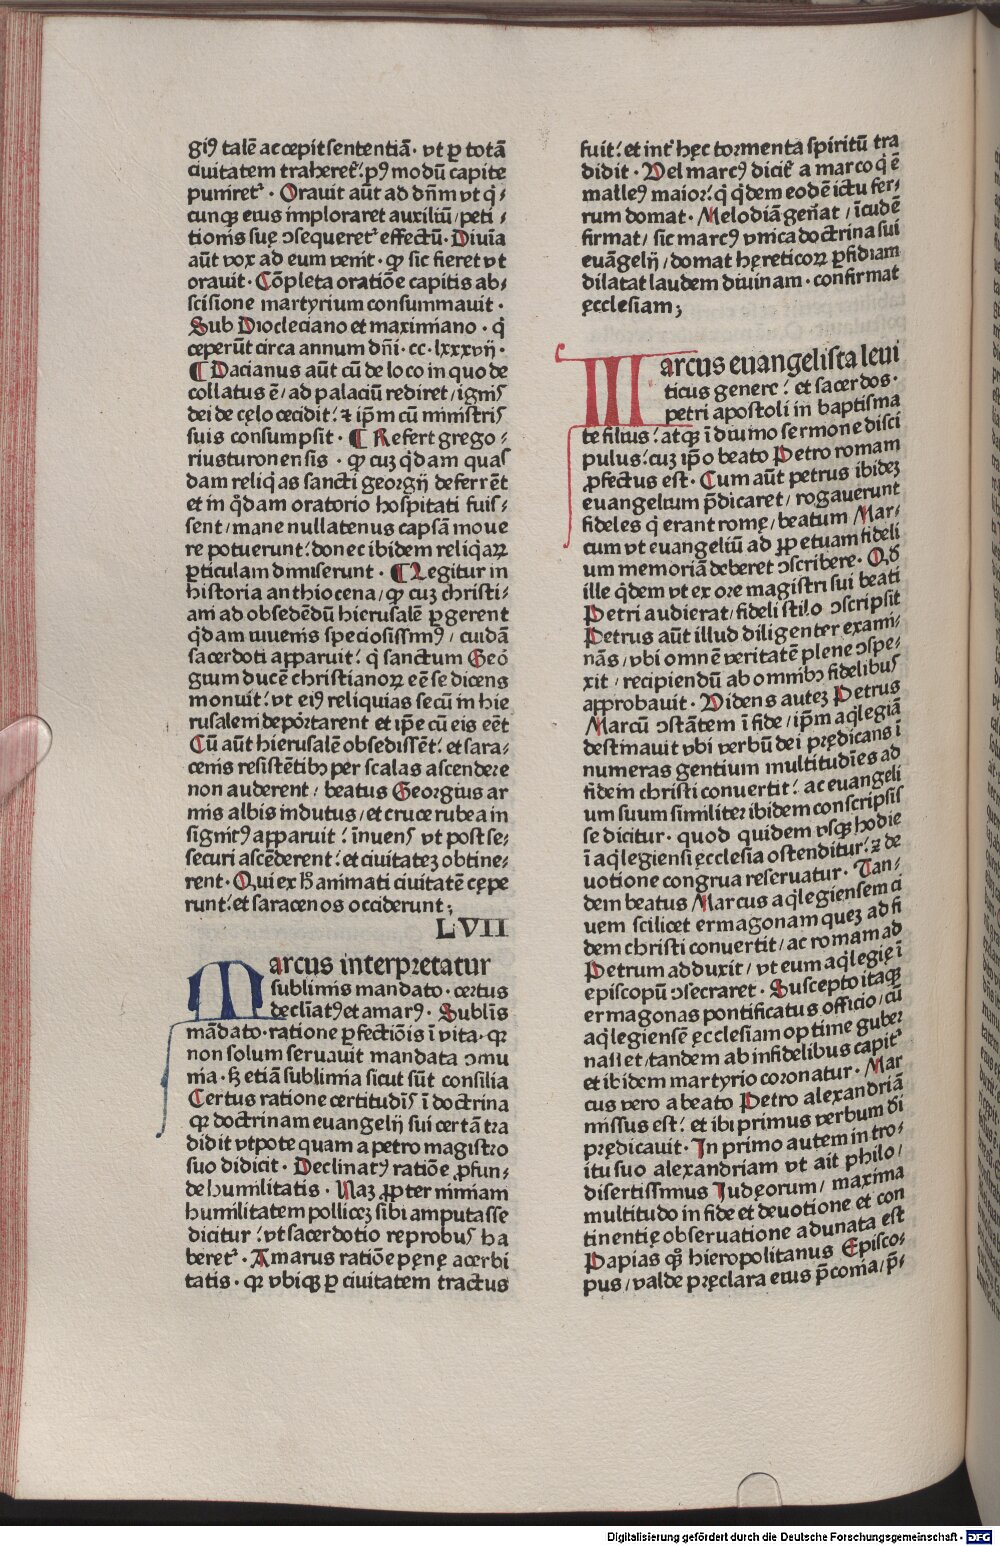 giꝰ talē accepit sententiā· vt ꝑ totā
ciuitatem traheret᷑ : pꝰ modū capite
puniret᷑ · Orauit aūt ad dn̄m vt q̇-
cunqꝫ eius imploraret auxiliū / peti-
tionis suę ↄsequeret᷑ effectū· Diuīa
aūt vox ad eum venit · ꝙ sic fieret vt
orauit · Cōpleta oratiōe capitis ab-
scisione martyrium consummauit ·
Sub Diocleciano et maximiano · q̇
ceperūt circa annum dn̄i · cc · lxxxvij ·
¶ Dacianus aūt cū de loco in quo de
collatus ē / ad palaciū rediret / ignis
dei de cęlo cecidit : ⁊ ip̄m cū ministris
suis consumpsit · ¶ Refert grego-
rius turonensis · ꝙ cuꝫ q̇dam quas
dam reliq̇as sancti georgij deferrēt
et in q̇dam oratorio hospitati fuis-
sent / mane nullatenus capsā moue
re potuerunt : donec ibidem reliq̇aꝝ
ꝑticulam dimiserunt · ¶ Legitur in
historia anthiocena / ꝙ cuꝫ christi-
ani ad obsedēdū hierusalē ꝑgerent
q̇dam iuuenis speciosissimꝰ / cuidā
sacerdoti apparuit : q̇ sanctum Geo
gium ducē christianoꝝ eē se dicens
monuit : vt eiꝰ reliquias secū in hie
rusalem deportarent et ip̄e cū eis eēt
Cū aūt hierusalē obsedissēt : et sara-
cenis resistētibꝫ per scalas ascendere
non auderent / beatus Georgius ar
mis albis indutus / et cruce rubea in
signitꝰ apparuit : īnuens vt post se-
securi ascēderent : et ciuitateꝫ obtine-
rent · Qui ex h̄ animati ciuitatē cępe
runt : et saracenos occiderunt ;
LVII
Marcus interpretatur
sublimis mandato · certus
decliatꝰ et amarꝰ · Sublīs
mādato · ratione ꝑfectiōis ī vita · qꝛ
non solum seruauit mandata ↄmu
nia · sꝫ etiā sublimia sicut sūt consilia
Certus ratione certitudīs ī doctrina
qꝛ doctrinam euangelij sui certā tra
didit vtpote quam a petro magistro
suo didicit · Declinatꝰ ratiōe ꝓfun-
de humilitatis · Naꝫ ꝓpter nimiam
humilitatem polliceꝫ sibi amputasse
dicitur : vt sacerdotio reprobus ha
beret᷑ · Amarus ratiōe penę acerbi
tatis · qꝛ vbiqꝫ ꝑ ciuitatem tractus
fuit : et int᷑ hęc tormenta spiritū tra
didit · Vel marcꝰ dicit᷑ a marco q̇ ē
malleꝰ maior : q̇ q̇dem eodē ictu fer-
rum domat · Melodiā gen̄at / īcudē
firmat / sic marcꝰ vnica doctrina sui
euāgelij / domat hęreticoꝝ ꝑfidiam
dilatat laudem diuinam · confirmat
ęcclesiam ;
Marcus euangelista leui
ticus genere : et sacerdos ·
petri apostoli in baptisma
te filius : atqꝫ ī diuino sermone disci
pulus : cuꝫ ip̄o beato Petro romam
ꝓfectus est · Cum aūt petrus ibideꝫ
euangelium p̄dicaret / rogauerunt
fideles q̇ erant romę / beatum Mar-
cum vt euangeliū ad ꝑpetuam fideli
um memoriā deberet ↄscribere · Qd̄
ille q̇dem vt ex ore magistri sui beati
Petri audierat / fideli stilo ↄscripsit
Petrus aūt illud diligenter exami-
nās / vbi omnē veritatē plene ↄspe-
xit / recipiendū ab omnibꝫ fidelibus
approbauit · Videns auteꝫ Petrus
Marcū ↄstātem ī fide / ip̄m aq̇legiā
destinauit vbi verbū dei prędicans ī
numeras gentium multitudīes ad
fidem christi conuertit : ac euangeli
um suum similiter ibidem conscripsis
se dicitur · quod quidem vsqꝫ hodie
ī aq̇legiensi ęcclesia ostenditur : ⁊ de
uotione congrua reseruatur · Tan-
dem beatus Marcus aq̇legiensem ci
uem scilicet ermagonam queꝫ ad fi
dem christi conuertit / ac romam ad
Petrum adduxit / vt eum aq̇legię ī
episcopū ↄsecraret · Suscepto itaqꝫ
ermagonas pontificatus officio / cū
aq̇legiensē ęcclesiam optime guber
nasset / tandem ab infidelibus capit᷑
et ibidem martyrio coronatur · Mar
cus vero a beato Petro alexandriā
missus est : et ibi primus verbum dī
prędicauit · In primo autem intro-
itu suo alexandriam vt ait philo /
disertissimus Iudęorum / maxima
multitudo in fide et deuotione et con
tinentię obseruatione adunata est
Papias qꝫ hieropolitanus Episco-
pus / valde pręclara eius p̄conia / p̄-
Digitalisierung gefördert durch die Deutsche Forschungsgemeinschaft · DFG